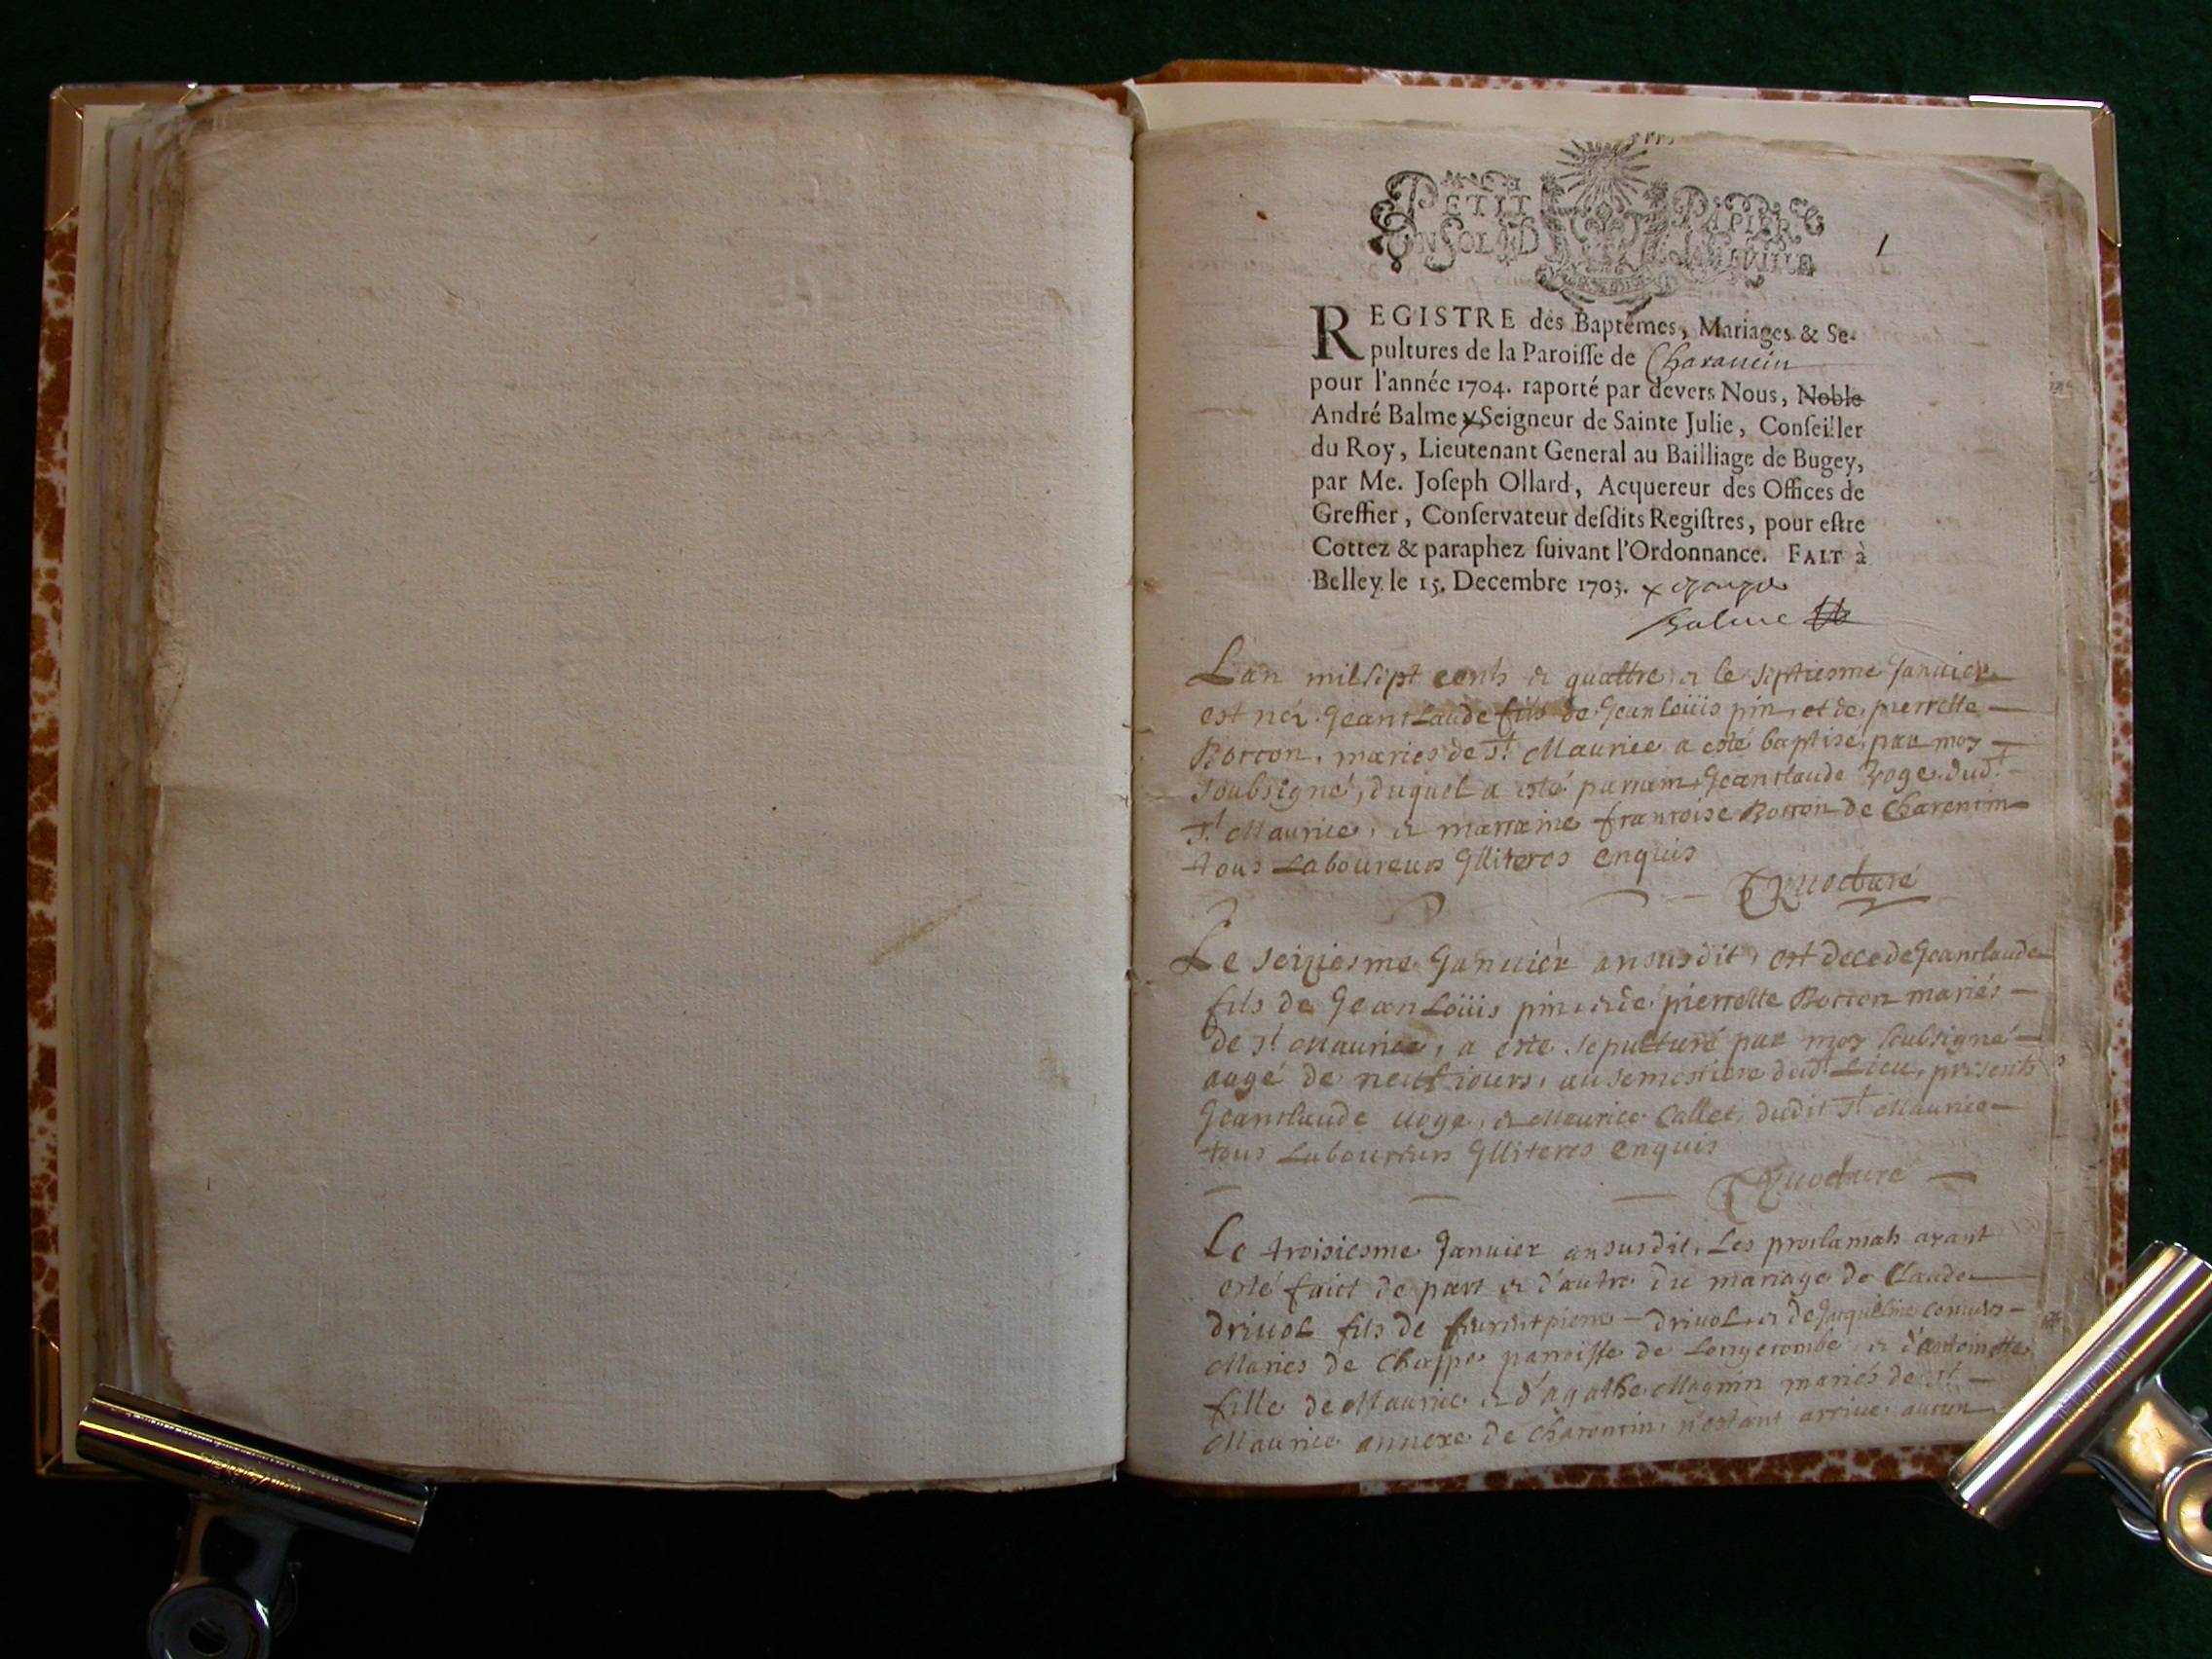 PETIT PAPIER
1
REGISTRE des Baptêmes, Mariages & Se-
pultures de la Paroisse de Charancin
pour l'année 1704. raporté par devers Nous, Noble
André Balme x Seigneur de Sainte Julie, Conseiller
du Roy, Lieutenant General au Bailliage de Bugey,
par Me. Joseph Ollard, Acquereur des Offices de
Greffier, Conservateur desdits Registres, pour estre
Cottez & paraphez suivant l'Ordonnance. FAIT à
Belley le 15. Decembre 1703. x
Balme
L'an mil sept cents & quattre & le septiesme Januier
est né Jeanclaude fils de Jean Loüis pin et de pierrette
Borron, mariés de St Maurice a esté baptisé par moy
soubsigné, duquel a esté parrain Jeanclaude Voge dudt
St Maurice, & marraine francoise Borron de Charencin
tous Laboureurs Jlliteres enquis
curé
Le seiziesme Januier an susdit, est decede Jeanclaude
fils de Jean Loüis pin & de pierrette Borron mariés
de St Maurice, a esté sepulturé par moy soubsigné
aagé de neuf iours, au semestiere dudt Lieu, presents
Jeanclaude uoge, & Maurice Callet, dudit St Maurice
tous Laboureurs Jlliteres enquis
curé
Le troisiesme Januier an susdit, Les proclamats ayant
esté faict de part & d'autre du mariage de Claude
driuol fils de pierre driuol & de Jacqueline
Mariés de Charppe parroisse de Longecombe & d'antoinette
fille de Maurice & d'agathe Magnin mariés de St
Maurice annexe de Charencin, n'estant arriue aucun